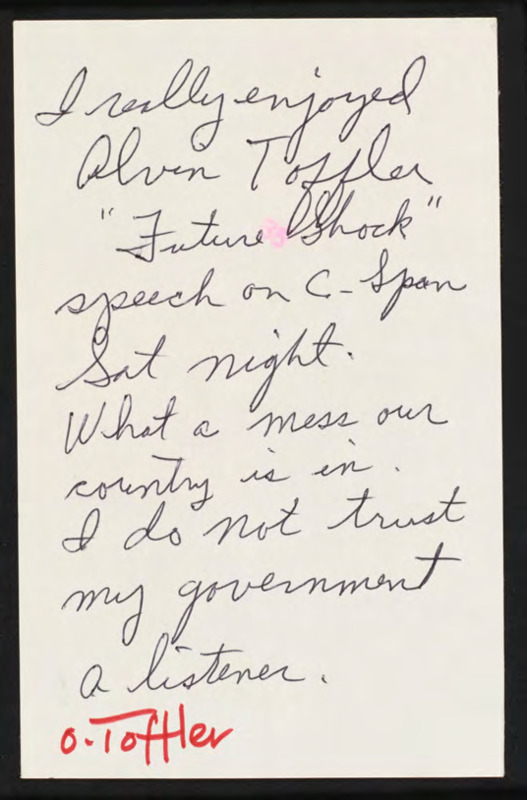 I really enjoyed
Alvin Toffler
"Future Shock"
speech on C-Span
Sat night.
What a mess our
country is in.
I do not trust
my government
a listener.
O. Toffler